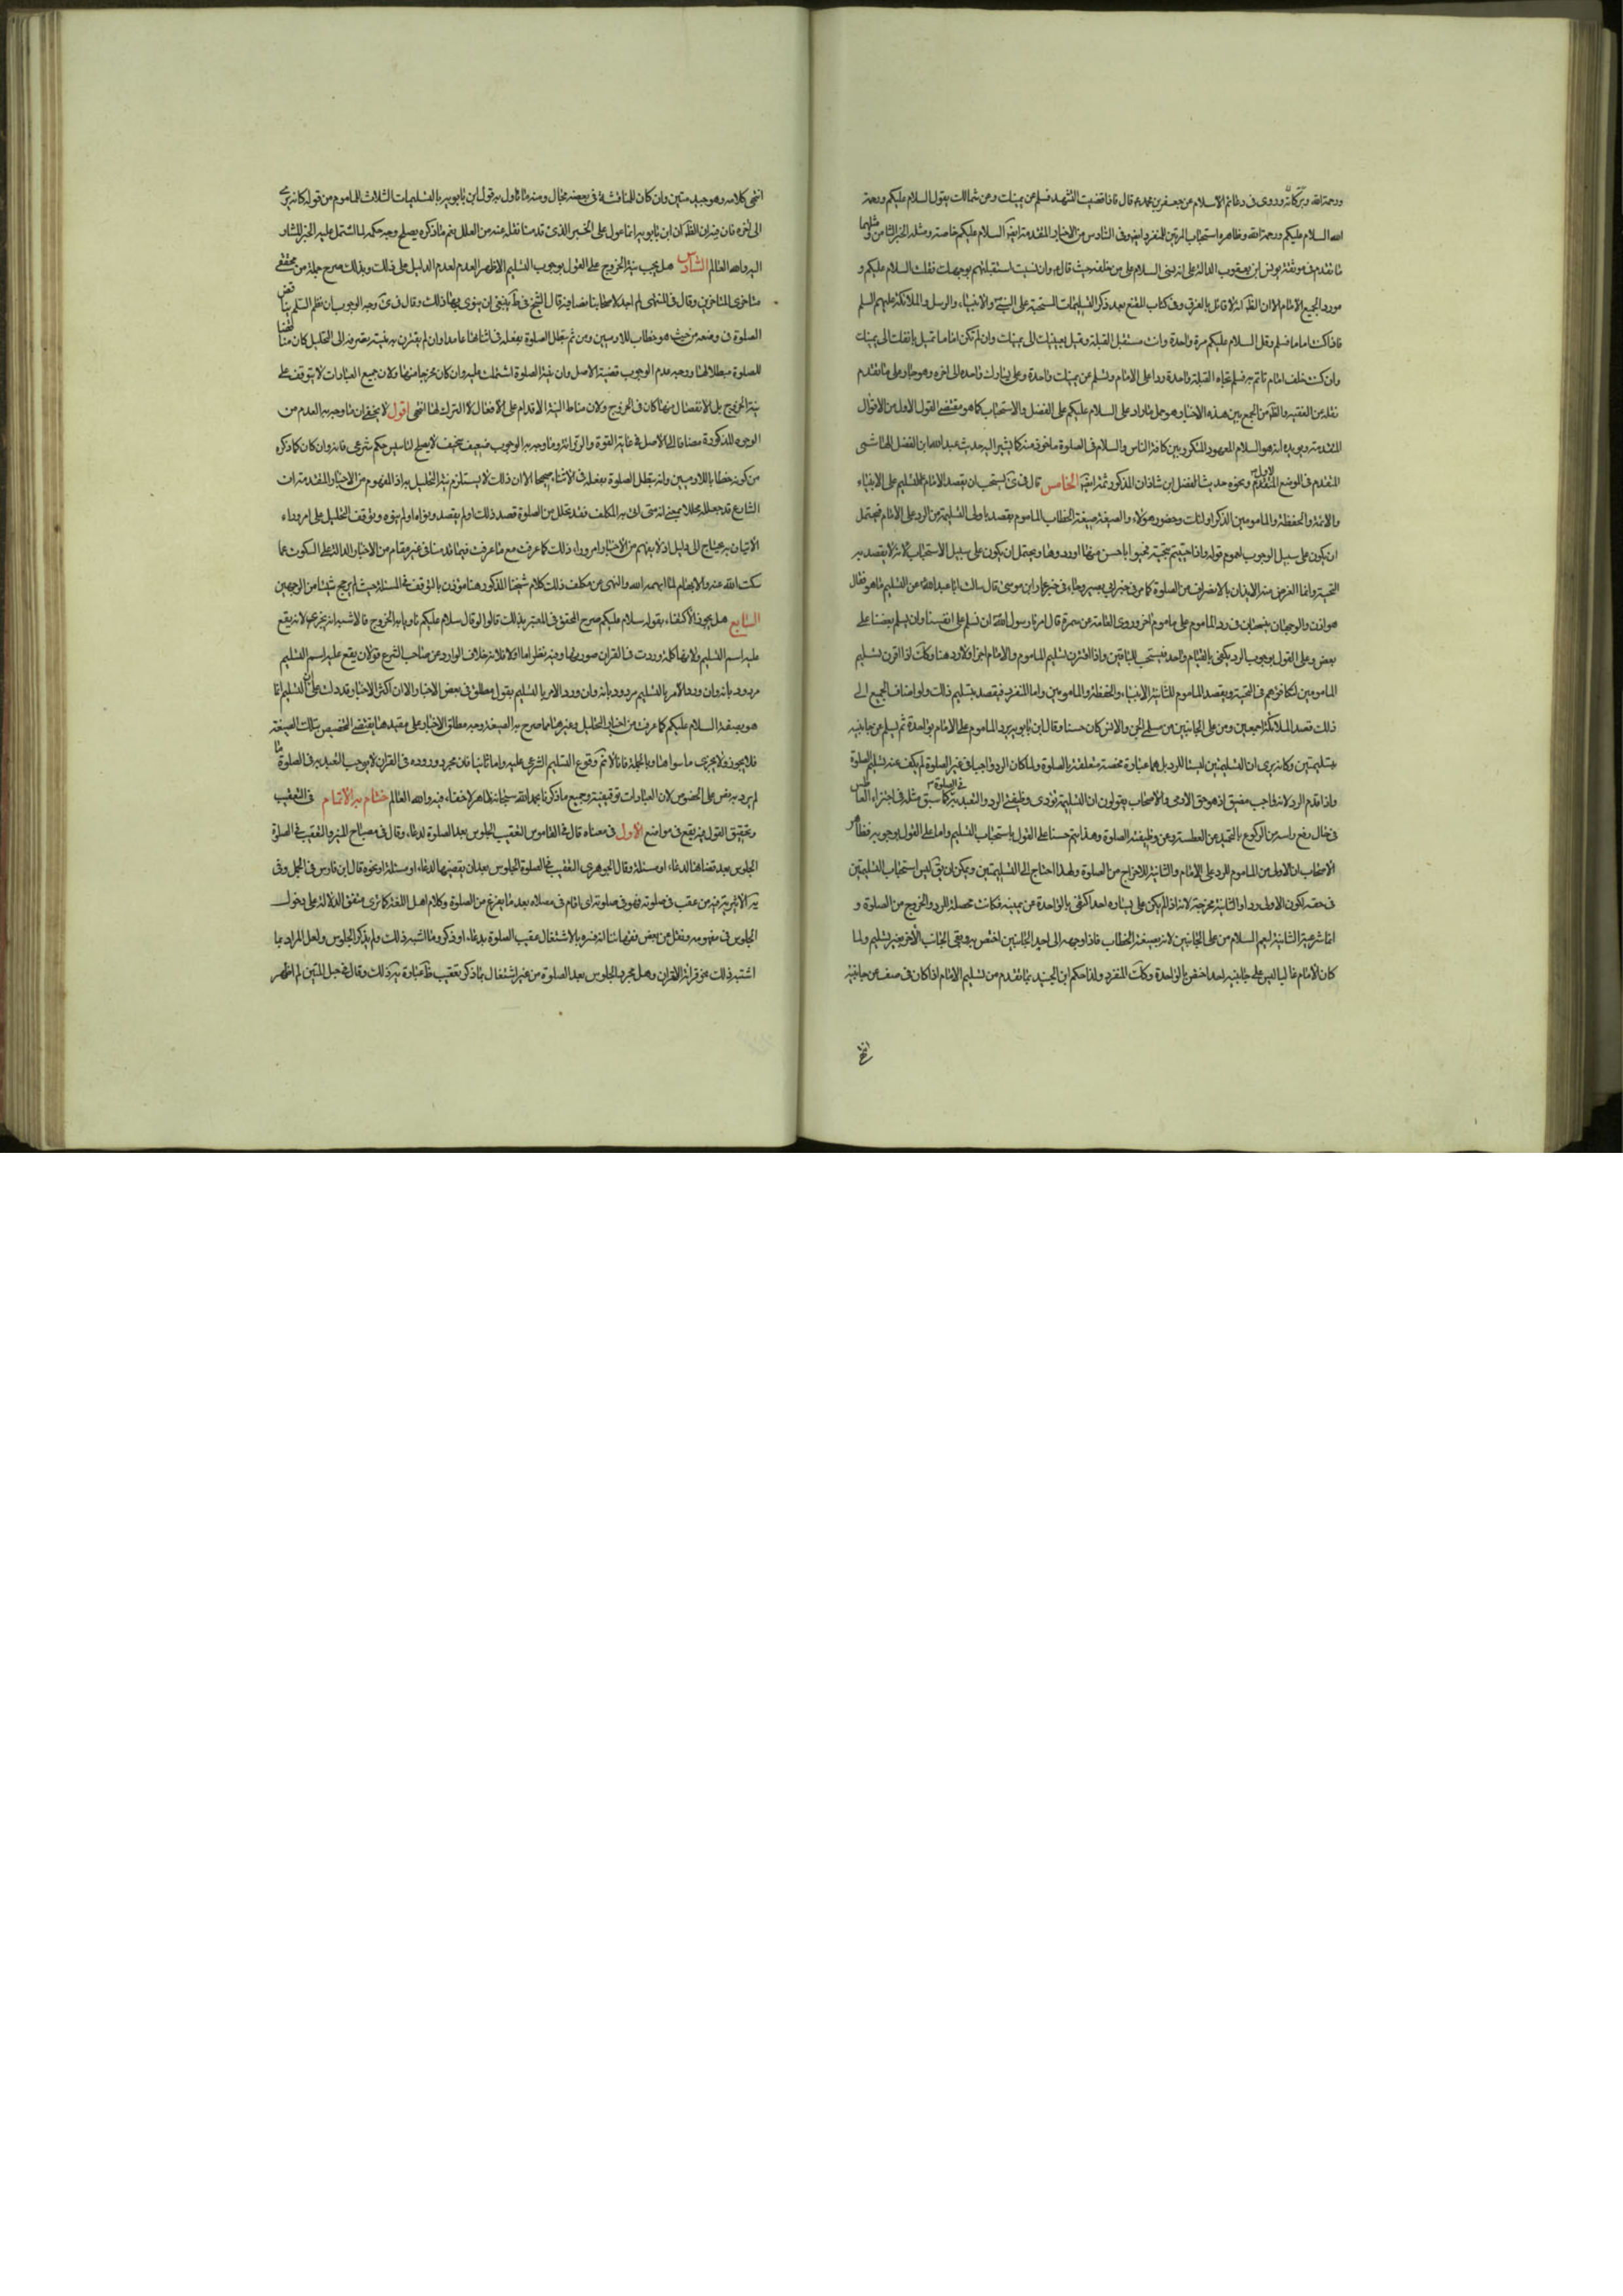 ورحمة الله وبركاته وروى في دعائم الاسلام عن جعفر بن محمد ع قال فاذا قضيت التشهد فسلم عن يمينك وعن شمالك يقول السلام عليكم ورحمة
الله السلام عليكم ورحمة الله وظاهره استحباب المرتين للمنفرد ايضا وفي السادس من الاخبار المتقدمة ايضا السلام عليكم خاصة ومثله الخبر الثامن و مثلهما
ما تقدم في موثقة يونس ابن يعقوب الدالة على انه نسى السلام على من خلفه حيث قال ولو نسيت استقبلتهم بوجهك فقلت السلام عليكم و
مورد الجميع الامام الا ان الظ انه لا قائل بالفرق وفي كتاب المقنع بعد ذكر التسليمات المستحبة على النبي والانبياء والرسل والملائكة عليهم السلم
فاذا كنت اماما فسلم وقل السلام عليكم مرة واحدة وانت مستقبل القبلة وتميل بعينك الى يمينك وان لم تكن اماما تميل بانفك الى يمينك
وان كنت خلف امام تاتم به فسلم تجاه القبلة واحدة ردا على الامام وتسلم عن يمينك واحدة وعلى يسارك واحدة الى اخره وهو جار على ما تقدم
نقله من الفقيه والظ من الجمع بين هذه الاخبار هو حمل ما زاد على السلام عليكم على الفضل والاستحباب كما هو مقتضى القول الاول من الاقوال
المتقدمة ويؤيده انه هو السلام المعهود المتكرر بين كافة الناس والسلام في الصلوة ماخوذ منه كما يشير اليه حديث عبد الله ابن الفضل الهاشمي
المتقدم في الموضع المتقدم ونحوه حديث المفضل ابن شاذان المذكور ثمة ايضا الخامس قال في يستحب ان يقصد الامام بالتسليم على الانبياء
والائمة والحفظة والمامومين لذكر اولئك وحضور هؤلاء والصيغة صيغة الخطاب والماموم يقصد باولى التسليمتين الرد على الامام فيحتمل
ان يكون على سبيل الوجوب لعموم قوله واذا حييتم بتحية فحيوا باحسن منها او ردوها ويحتمل ان يكون على سبيل الاستحباب لانه لا يقصد به
التحية وانما الغرض منه الايذان بالانصراف من الصلوة كما مر في خبر ابي بصير وجاء في خبر عمار ابن موسى قال سالت ابا عبد الله ع عن التسليم ما هو فقال
هو اذن والوجهان ينسحبان في رد الماموم على ماموم اخر وروى العامة عن سمرة قال امرنا رسول الله ان نسلم على انفسنا وان يسلم بعضنا على
بعض وعلى القول بوجوب الرد يكفي بالقيام واحد فيستحب للباقين واذا اقترن تسليم الماموم والامام اجزا ولا رد هنا وكذلك اذا اقترن تسليم
المامومين لتكافئهم في التحية ويقصد الماموم للثانية الانبياء والحفظة والمامومين واما المنفرد فيقصد بتسليم ذلك ولو اضاف الجميع الى
ذلك قصد الملائكة اجمعين ومن على الجانبين من مسلمي الجن والانس كان حسنا وقال ابن بابويه يرد الماموم على الامام بواحدة ثم يسلم عن جانبيه
بتسليمتين وكانه يرى ان التسليمتين ليستا للرد بل هما عبادة محضة متعلقة بالصلوة ولما كان الرد واجبا في غير الصلوة لم يكف عنه تسليم الصلوة
واذا قدم الرد لانه واجب مضيق اذ هو حق الادمي والاصحاب يقولون ان التسليمة تؤدى وظيفتي الرد والتعبد به في الصلوة كما سبق مثله في اجزاء العاطس
في حال رفع راسه من الركوع بالتحميد عن العطسة وعن وظيفة الصلوة وهذا يتم حسنا على القول باستحباب التسليم واما على القول بوجوبه فظاهر
الاصحاب ان الاولى من الماموم للرد على الامام والثانية للاخراج من الصلوة ولهذا احتاج الى التسليمتين ويمكن ان يق ليس استحباب التسليمتين
في حقه لكون الاولى ردا والثانية مخرجة لانه اذا لم يكن على يساره احد اكتفى بالواحدة عن يمينه فكانت محصلة للرد والخروج من الصلوة و
انما شرعية الثانية ليعم السلام من على الجانبين لانه بصيغة الخطاب فاذا وجهه الى احد الجانبين اختص به وبقى الجانب الاخر بغير تسليم ولما
كان الامام غالبا ليس على جانبيه احد اختص بالواحدة وكذلك المنفرد ولذا حكم ابن الجنيد بما تقدم من تسليم الامام اذا كان في صف عن جانبيه
انتهى
انتهى كلامه وهو جيد متين وان كان للمناقشة في بعضه مجال ومنه ما تاول به قول ابن بابويه بالتسليمات الثلاث للماموم من قوله كانه يرى
الى اخره فان فيه ان الظ ان ابن بابويه انما عول على الخبر الذي قدمنا نقله عنه من العلل نعم ما ذكره يصلح وجه حكمة لما اشتمل عليه الخبر المشار
اليه والله العالم السادس هل يجب نية الخروج على القول بوجوب التسليم الاظهر العدم لعدم الدليل على ذلك وبذلك صرح جملة من محققي
متاخري المتاخرين وقال في المنتهى لم اجد لاصحابنا نصا فيه قال الشيخ في ط ينبغي ان ينوي بها ذلك وقال في وجه الوجوب ان نظم السلم يناقض
الصلوة في وضعه من حيث هو خطاب للادميين ومن ثم تبطل الصلوة بفعله في اثنائها عامدا وان لم يقترن به نية تصرفه الى التحليل كان مناقضا
للصلوة مبطلا لها ووجه عدم الوجوب قضية الاصل وان نية الصلوة اشتملت عليه وان كان مخرجا منها ولان جميع العبادات لا يتوقف على
نية الخروج بل الانفصال منها كان في الخروج ولان مناط النية الاقدام على الافعال لا الترك لها انتهى اقول لا يخفى ان ما وجه به العدم من
الوجوه المذكورة مضافا الى الاصل في غاية القوة والرزانة وما وجه به الوجوب ضعيف سخيف لا يصلح لتاسيس حكم شرعي فانه وان كان كما ذكره
من كونه خطابا للادميين وانه تبطل الصلوة بفعله في الاثناء صحيحا الا ان ذلك لا يستلزم نية التحليل به اذ المفهوم من الاخبار المتقدمة ان
الشارع قد جعله محللا بمعنى انه متى اتى به المكلف فقد تحلل من الصلوة قصد ذلك او لم يقصد ونواه او لم ينوه وتوقف التحليل على امر وراء
الاتيان به يحتاج الى دليل اذ لا يفهم من الاخبار امر وراء ذلك كما عرفت مع ما عرفت فيما قدمنا في غير مقام من الاخبار الدالة على السكوت عما
سكت الله عنه والابهام لما ابهمه الله والنهي عن تكلف ذلك كلام شيخنا المذكور هنا مؤذن بالتوقف في المسئلة حيث لم يرجح شيئا من الوجهين
السابع هل يجوز الاكتفاء بقوله سلام عليكم صرح المحقق في المعتبر بذلك قالوا لو قال سلام عليكم ناويا به الخروج فالاشبه انه يجزي لانه يقع
عليه اسم التسليم ولانها كلمة وردت في القران صورتها وفيه نظر اما اولا فلانه خلاف الوارد عن صاحب الشرع قوله لان يقع عليه اسم التسليم
مردود بانه وان ورد الامر بالتسليم مردود بانه وان ورد الامر بالتسليم بقول مطلق في بعض الاخبار الا ان اكثر الاخبار قد دلت على ان التسليم انما
هو بصيغة السلام عليكم كما عرفت من اخبار التحليل وغيرها مما صرح به الصيغة وحمل مطلق الاخبار على مقيدها يقتضي التخصيص بتلك الصيغة
فلا يجوز ولا يجزي ما سواها وبالجملة فانا لا نم وقوع التسليم الشرعي عليه واما ثانيا فان مجرد وروده في القران لا يوجب التعبد به في الصلوة ما
لم يرد به نص على الخصوص لان العبادات توقيفية وجميع ما ذكرنا بحمد الله سبحانه ظاهر لا خفاء فيه والله العالم ختام به الاتمام في التعقيب
وتحقيق القول فيه يقع في مواضع الاول في معناه قال في القاموس التعقيب الجلوس بعد الصلوة لدعاء وقال في مصباح المنير والتعقيب في الصلوة
الجلوس بعد قضائها لدعاء او مسئلة وقال الجوهري التعقيب في الصلوة الجلوس بعد ان يقضيها لدعاء او مسئلة ونحوه قال ابن فارس في المجمل وفي
يه الاثيرية فيه من عقب في صلوته فهو في صلوته اي اقام في مصلاه بعد ما يفرغ من الصلوة وكلام اهل اللغة كما ترى متفق الدلالة على دخول
الجلوس في مفهومه ونقل عن بعض فقهائنا انه فسره بالاشتغال عقيب الصلوة بدعاء او ذكر وما اشبه ذلك ولم يذكر الجلوس ولعل المراد بما
اشبه ذلك نحو قرائة القران وهل مجرد الجلوس بعد الصلوة من غير اشتغال بما ذكر تعقيب ظ عبارة يه ذلك وقال في حبل المتين لم اظهر